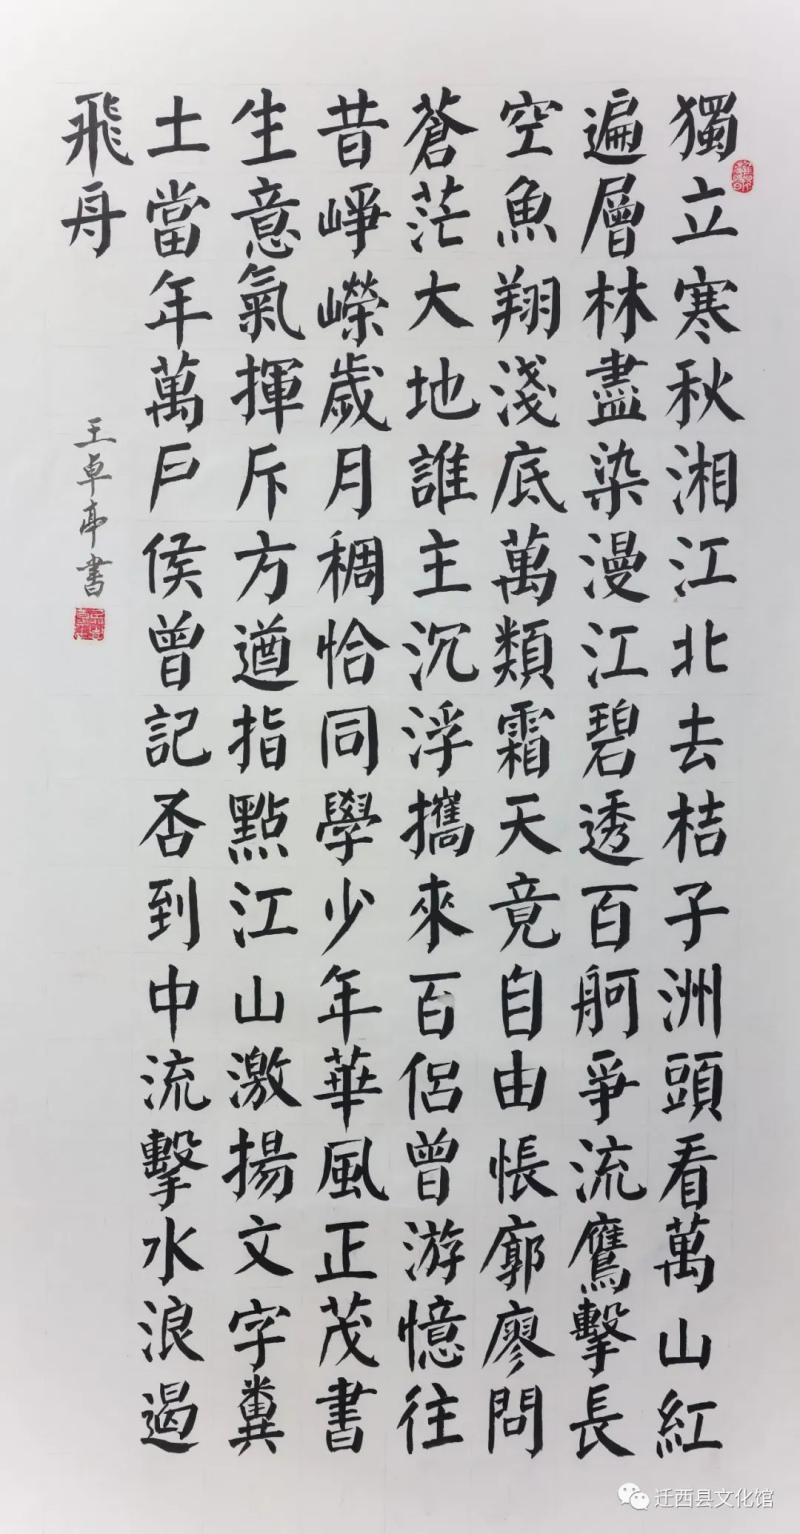 獨立寒秋湘江北去桔子洲頭看萬山紅
遍層林盡染漫江碧透百舸爭流鷹擊長
空魚翔淺底萬類霜天竟自由悵廓廖問
蒼茫大地誰主沉浮攜來百侶曾游憶往
昔崢嶸歲月稠恰同學少年華風正茂書
生意氣揮斥方遒指點江山激揚文字糞
土當年萬戶侯曾記否到中流擊水浪遏
飛舟
王卓亭書
迁西县文化馆